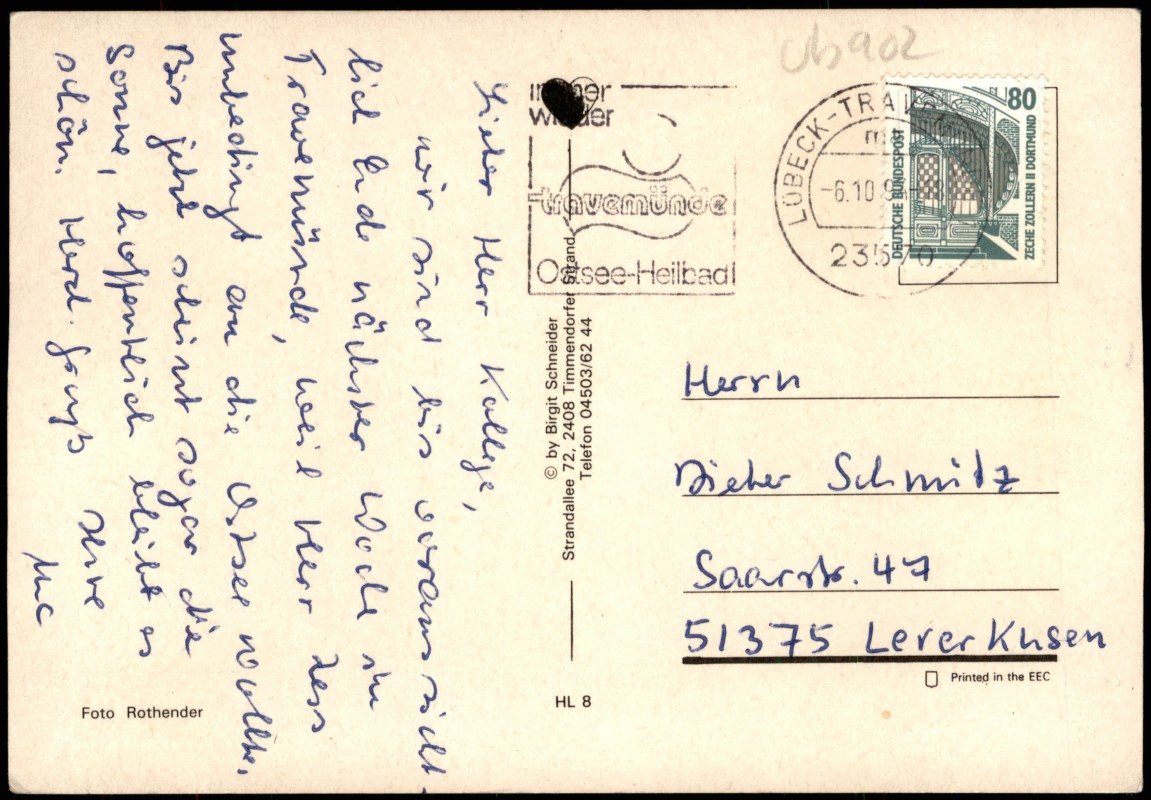 Lieber Herr Kollege,
wir sind bis voraussicht-
lich Ende nächster Woche in
Travemünde, weil Herr Zess
unbedingt an die Ostsee wollte.
Bis jetzt scheint sogar die
Sonne, hoffentlich bleibt es
schön. Herzl. Grüße
© by Birgit Schneider
Strandallee 72, 2408 Timmendorfer Strand
Telefon 04503/62 44
HL 8
Foto Rothender
immer
wieder
travemünde
Ostsee-Heilbad
LÜBECK-TRAV
-6.10.9
23570
80
DEUTSCHE BUNDESPOST
ZECHE ZOLLERN II DORTMUND
Herrn
Dieter Schmitz
Saarstr. 47
51375 Leverkusen
Printed in the EEC